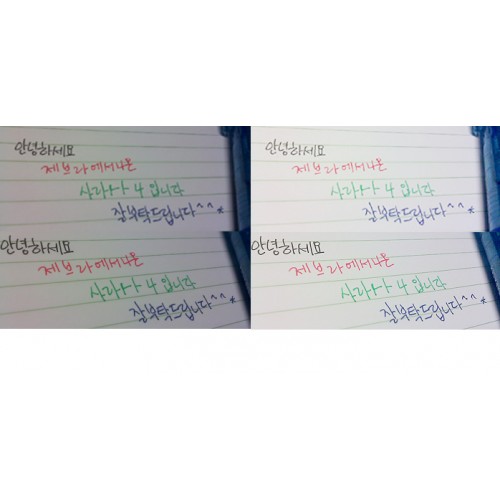 안녕하세요
제브라에서나온
사라사 4 입니다
잘부탁드립니다^^*
안녕하세요
제브라에서나온
사라사 4 입니다
잘부탁드립니다^^*
안녕하세요
제브라에서나온
사라사 4 입니다
잘부탁드립니다^^*
안녕하세요
제브라에서나온
사라사 4 입니다
잘부탁드립니다^^*